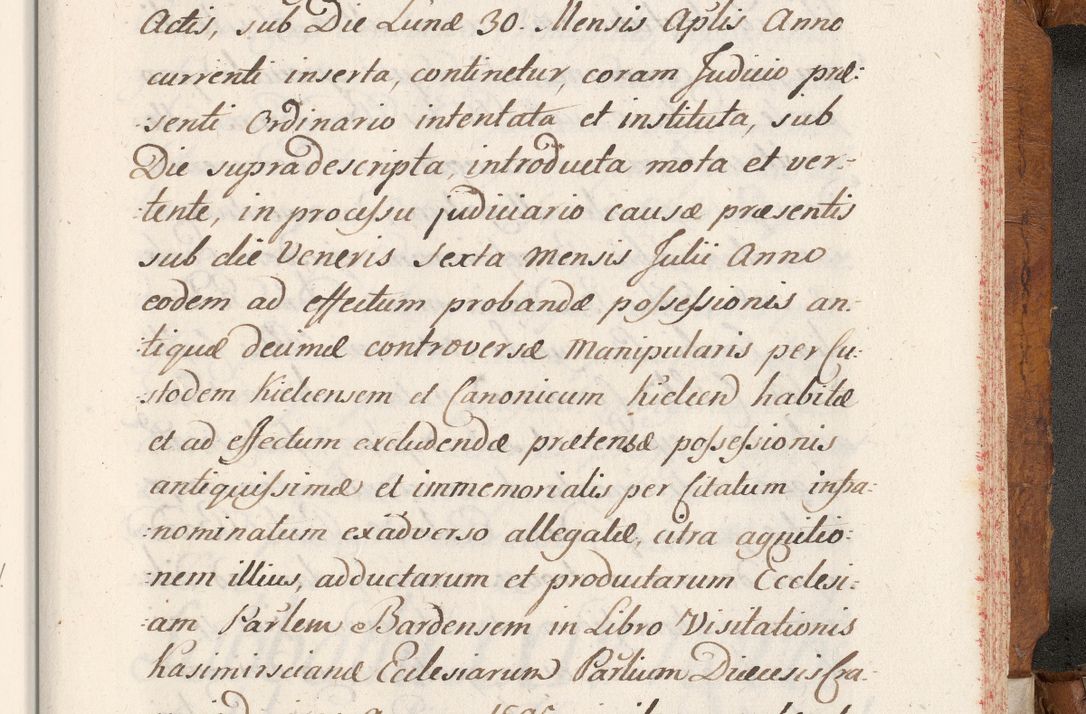 Actis, sub Die Lunæ 30. Mensis Aplis Anno
currenti inserta, continetur, coram Judicio præ:
:senti Ordinario intentata et instituta, sub
Die supradescripta, introducta mota et ver:
:tente, in processu judiciario causæ præsentis
sub die Veneris Sexta Mensis Julii Anno
eodem ad effectum probandæ possessionis an:
:tiquæ decimæ controversæ Manipularis per Cu:
:stodem Kielcensem et Canonicum Kielcen habitæ
et ad effectum excludendæ prætensæ possessionis
antiquissimæ et immemorialis per Citatum infra:
:nominatum exadverso allegatæ, citra agnitio:
:nem illius, adductarum et productarum Ecclesi:
:am Parlem Bardensem in Libro Visitationis
Kasimirscianæ Ecclesiarum Parlium Diæcesis Cra: